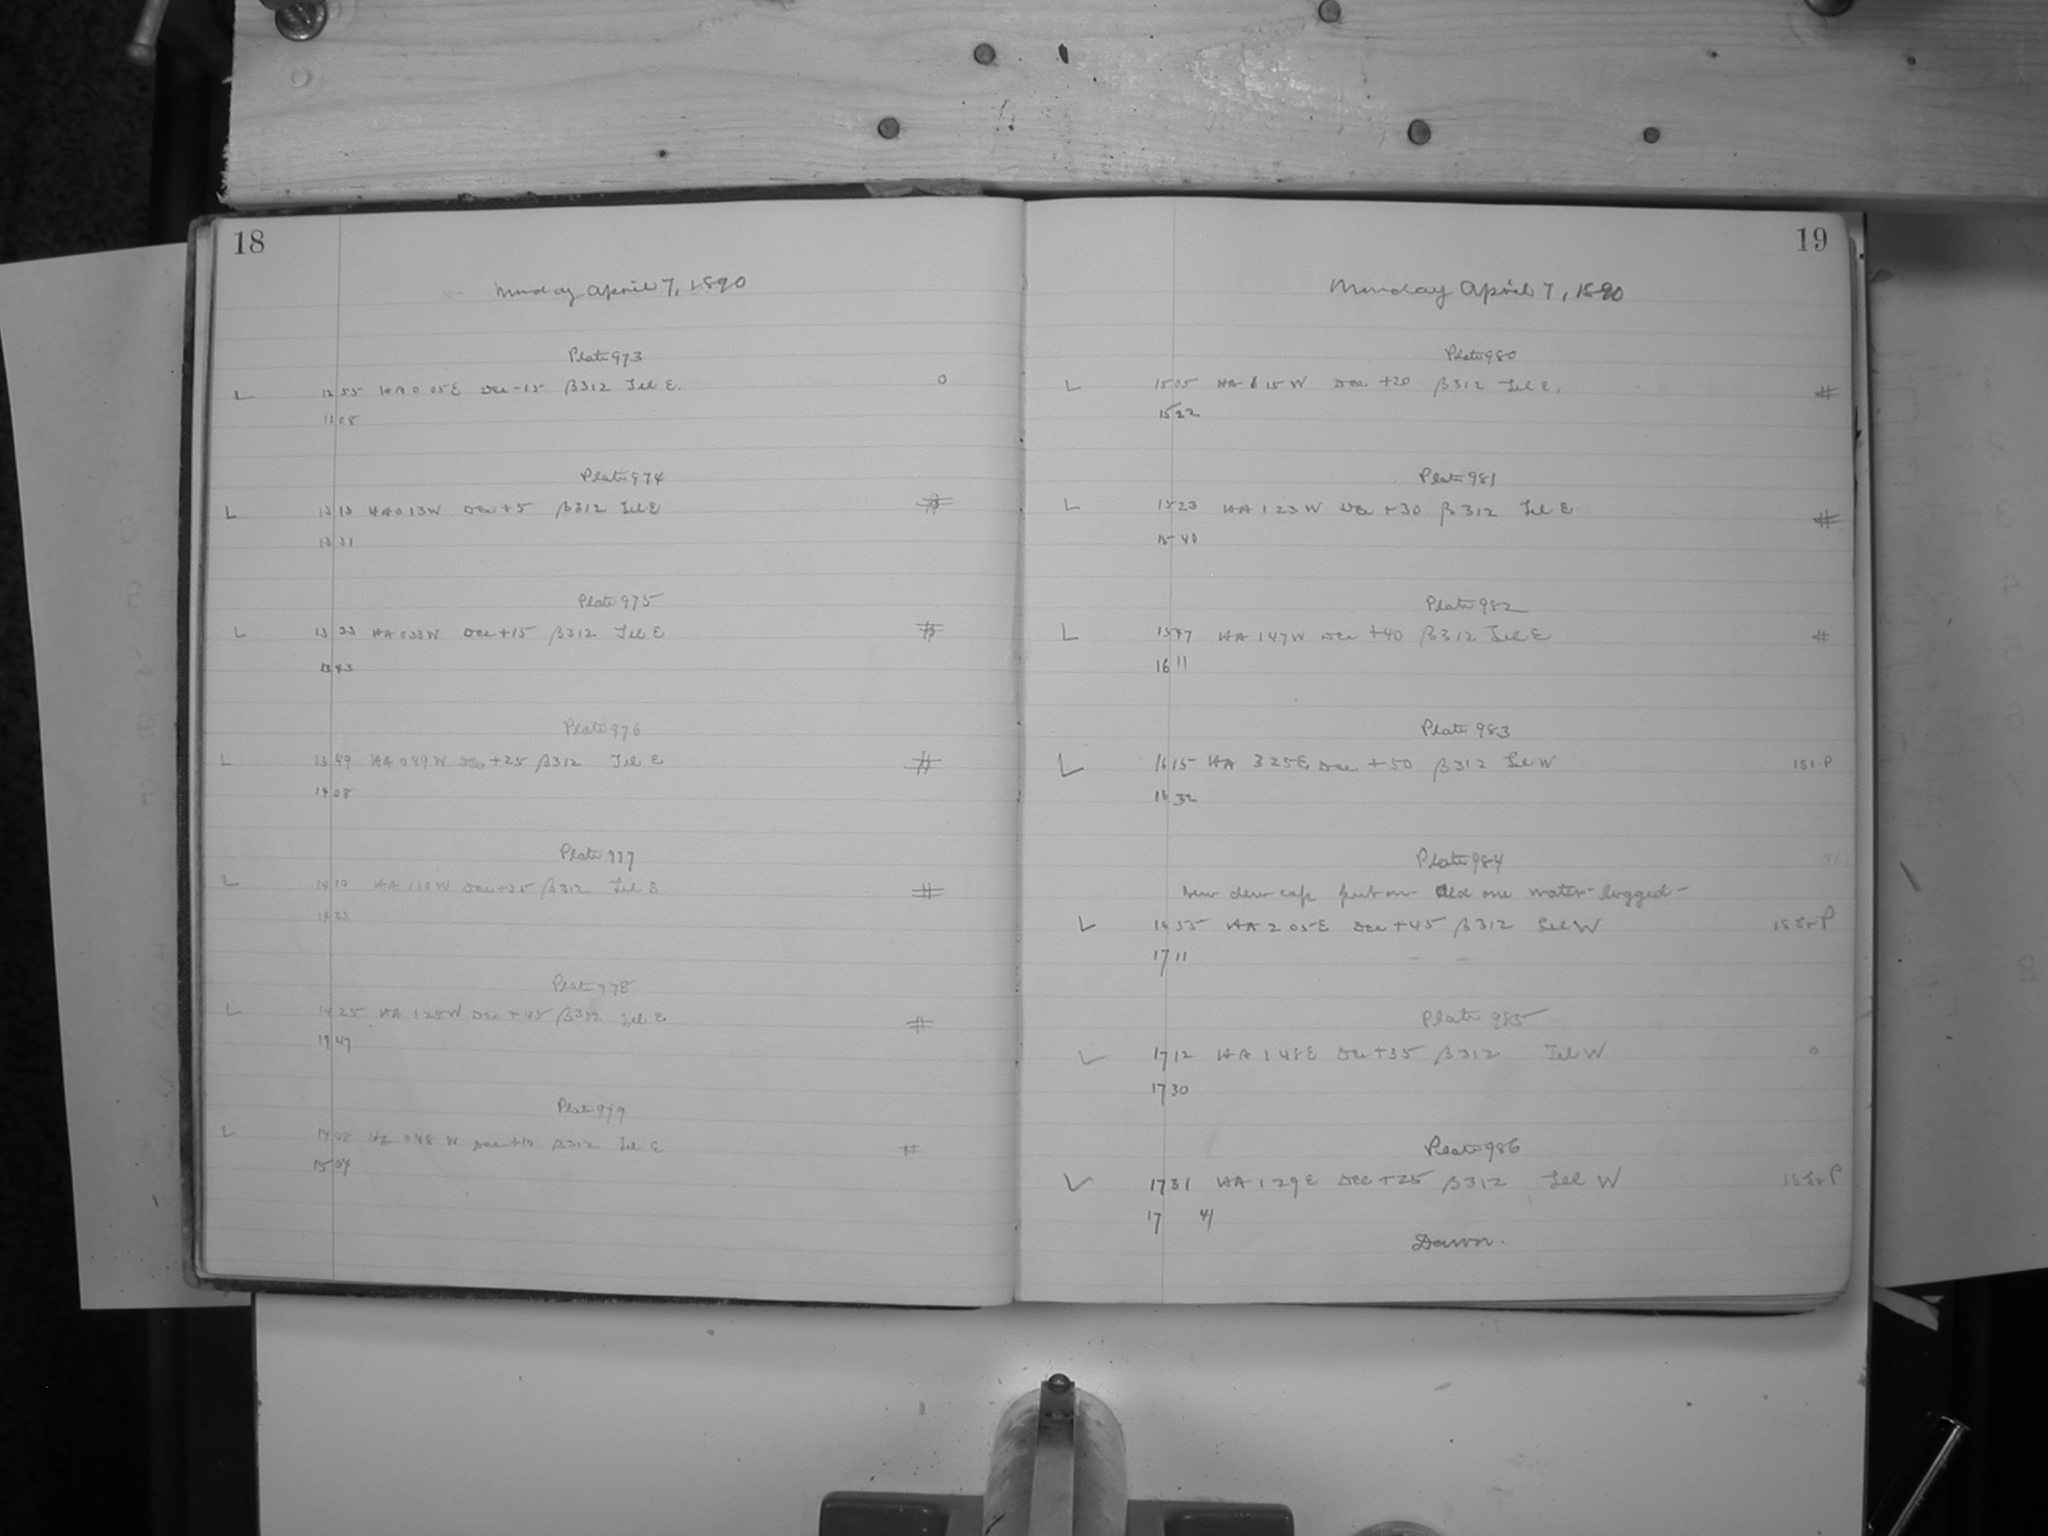 18
Monday April 7, 1890
Plate 973
L 12 55 HA 0 05 E Dec -15 β312 Tel E. 0
13 08
Plate 974
L 13 13 HA 0 13 W Dec +5 β312 Tel E
13 31
Plate 975
L 13 33 HA 0 33 W Dec +15 β312 Tel E
13 43
Plate 976
L 13 49 HA 0 49 W Dec +25 β312 Tel E #
14 08
Plate 977
L 14 10 HA 1 10 W Dec +35 β312 Tel E #
14 23
Plate 978
L 14 25 HA 1 25 W Dec +45 β312 Tel E #
14 47
Plate 979
L 14 48 HA 0 48 W Dec +10 β312 Tel E #
15 04
19
Monday April 7, 1890
Plate 980
L 15 05 HA 15 W Dec +20 β312 Tel E. #
15 22
Plate 981
L 15 23 HA 1 23 W Dec +30 β312 Tel E #
15 40
Plate 982
L 15 47 HA 1 47 W Dec +40 β312 Tel E #
16 11
Plate 983
L 16 15 HA 3 25 E Dec +50 β312 Tel W
16 32
Plate 984
New dew cap put on - Old one water-logged -
L 16 55 HA 2 05 E Dec +45 β312 Tel W
17 11
Plate 985
L 17 12 HA 1 48 E Dec +35 β312 Tel W 0
17 30
Plate 986
L 17 31 HA 1 29 E Dec +25 β312 Tel W
17 41
Dawn.